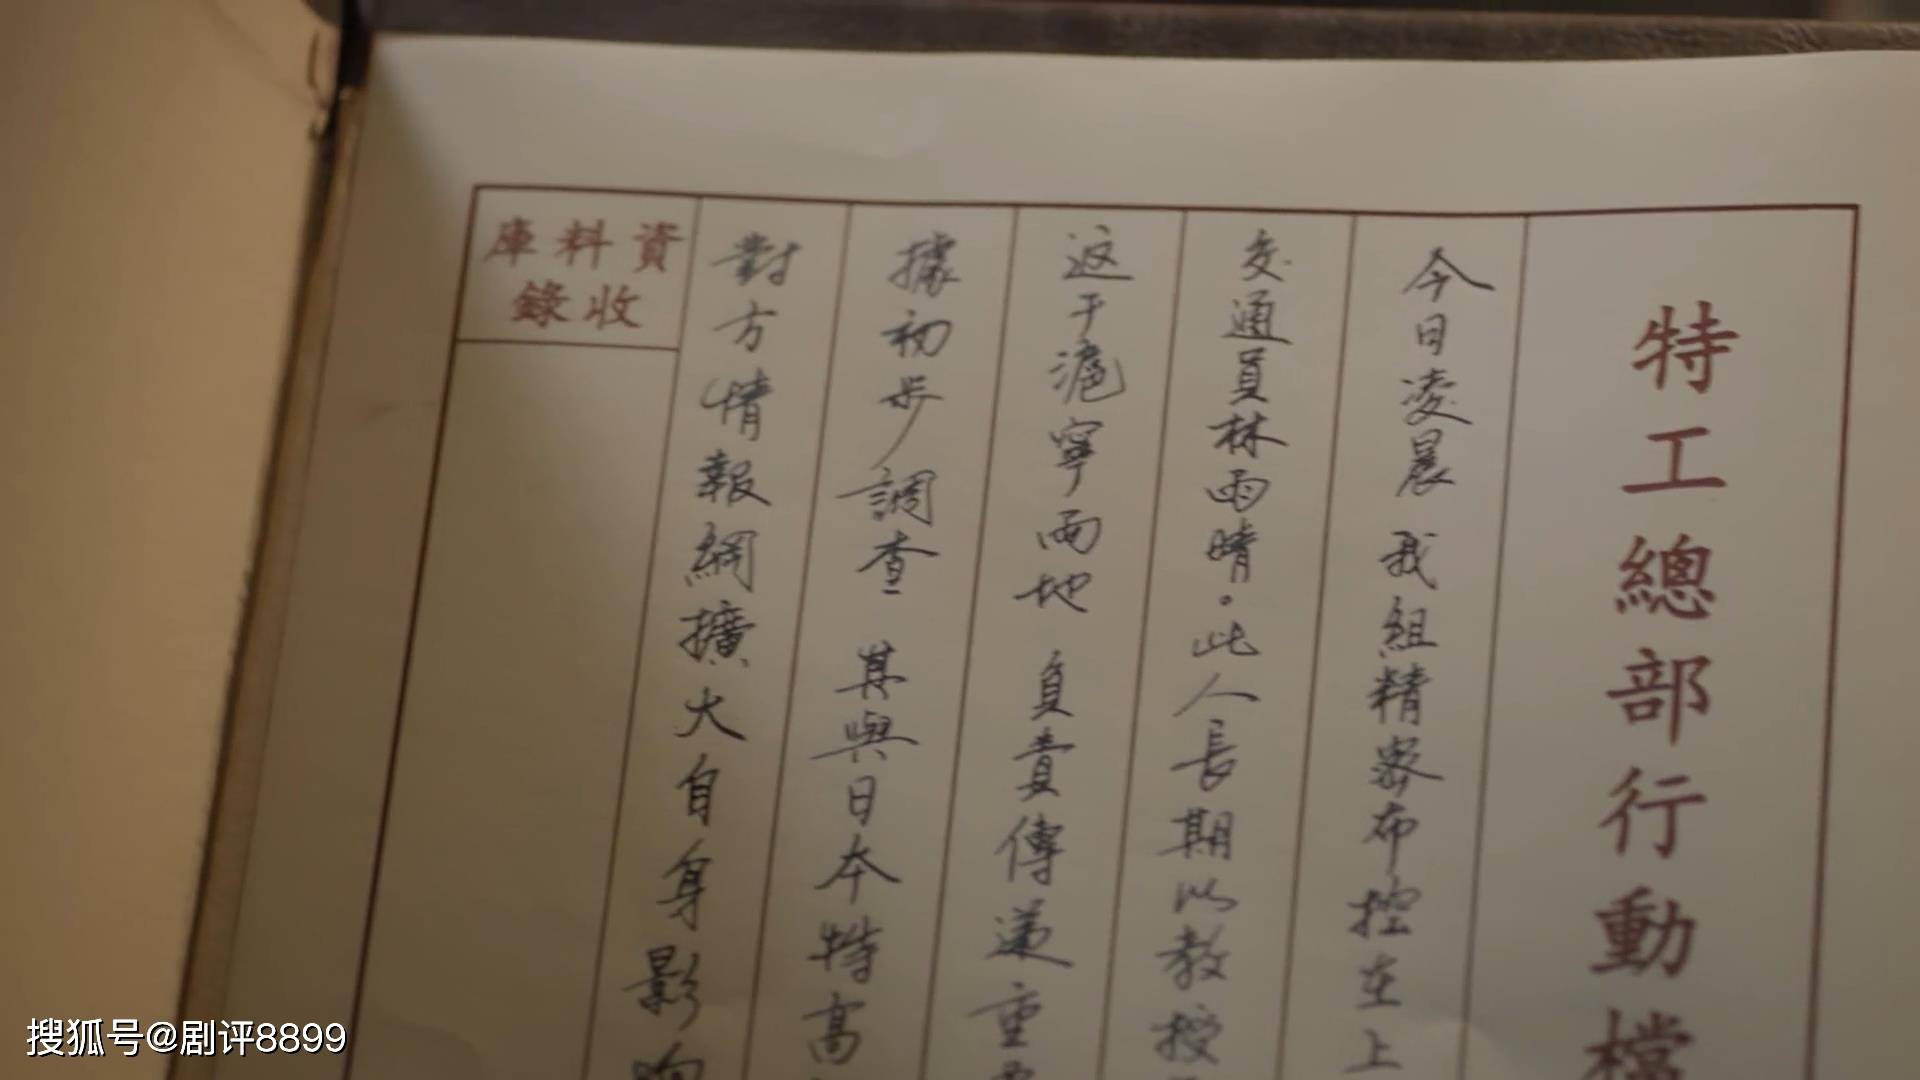 特工總部行動檔
今日凌晨 我組精密布控在上
交通員林雨晴。此人長期以教授
這于滬寧兩地 負責傳遞重
據初步調查 其與日本特高
對方情報網擴大自身影响
資料庫
收錄
搜狐号@剧评8899